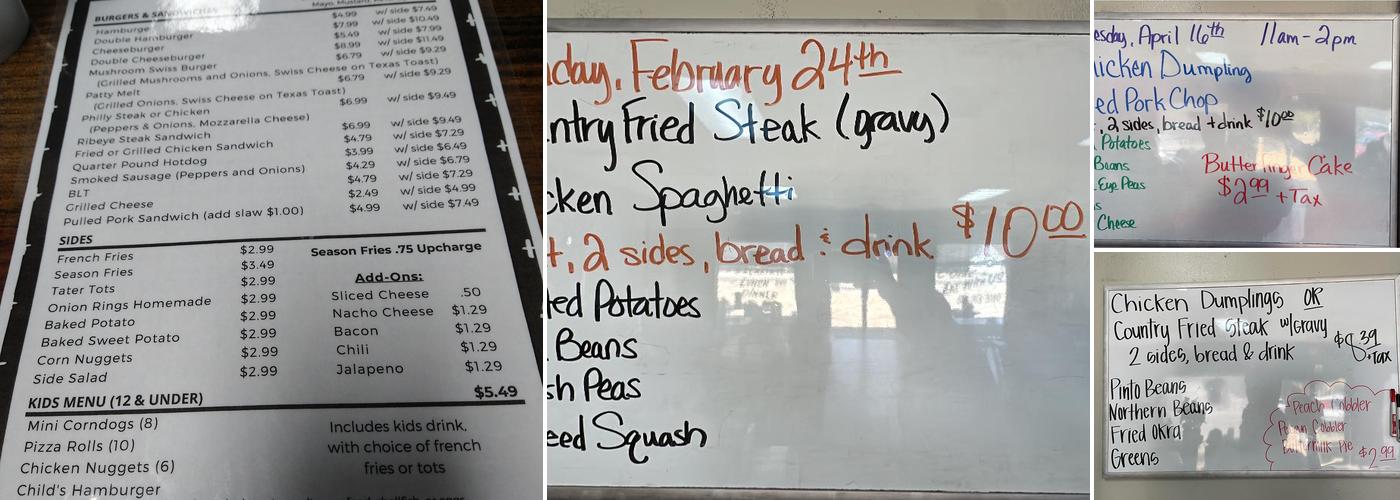 Mayo, Mustard,
BURGERS & SANDWICHES
Hamburger $4.99 w/ side $7.49
Double Hamburger $7.99 w/ side $10.49
Cheeseburger $5.49 w/ side $7.99
Double Cheeseburger $8.99 w/ side $11.49
Mushroom Swiss Burger $6.79 w/ side $9.29
(Grilled Mushrooms and Onions, Swiss Cheese on Texas Toast)
Patty Melt $6.79 w/ side $9.29
(Grilled Onions, Swiss Cheese on Texas Toast)
Philly Steak or Chicken $6.99 w/ side $9.49
(Peppers & Onions, Mozzarella Cheese)
Ribeye Steak Sandwich $6.99 w/ side $9.49
Fried or Grilled Chicken Sandwich $4.79 w/ side $7.29
Quarter Pound Hotdog $3.99 w/ side $6.49
Smoked Sausage (Peppers and Onions) $4.29 w/ side $6.79
BLT $4.79 w/ side $7.29
Grilled Cheese $2.49 w/ side $4.99
Pulled Pork Sandwich (add slaw $1.00) $4.99 w/ side $7.49
SIDES
French Fries $2.99
Season Fries $3.49
Tater Tots $2.99
Onion Rings Homemade $2.99
Baked Potato $2.99
Baked Sweet Potato $2.99
Corn Nuggets $2.99
Side Salad $2.99
Season Fries .75 Upcharge
Add-Ons:
Sliced Cheese .50
Nacho Cheese $1.29
Bacon $1.29
Chili $1.29
Jalapeno $1.29
KIDS MENU (12 & UNDER) $5.49
Mini Corndogs (8)
Pizza Rolls (10)
Chicken Nuggets (6)
Child's Hamburger
Includes kids drink,
with choice of french
fries or tots
day, February 24th
ntry Fried Steak (gravy)
cken Spaghetti
t, 2 sides, bread & drink $10.00
ed Potatoes
Beans
sh Peas
eed Squash
esday, April 16th 11am-2pm
icken Dumpling
ed Pork Chop
, 2 sides, bread + drink $10.00
Potatoes
Beans
Eye Peas
s
Cheese
Butterfinger Cake
$2.99 + Tax
Chicken Dumplings OR
Country Fried Steak w/Gravy
2 sides, bread & drink $8.39
+Tax
Pinto Beans
Northern Beans
Fried Okra
Greens
Peach Cobbler
Pecan Cobbler
Buttermilk Pie $2.99